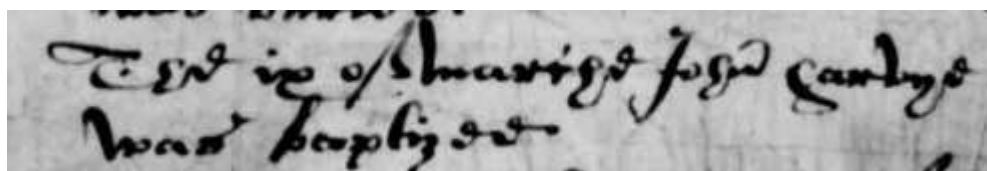 The ix of Marche John Carvye
was baptized